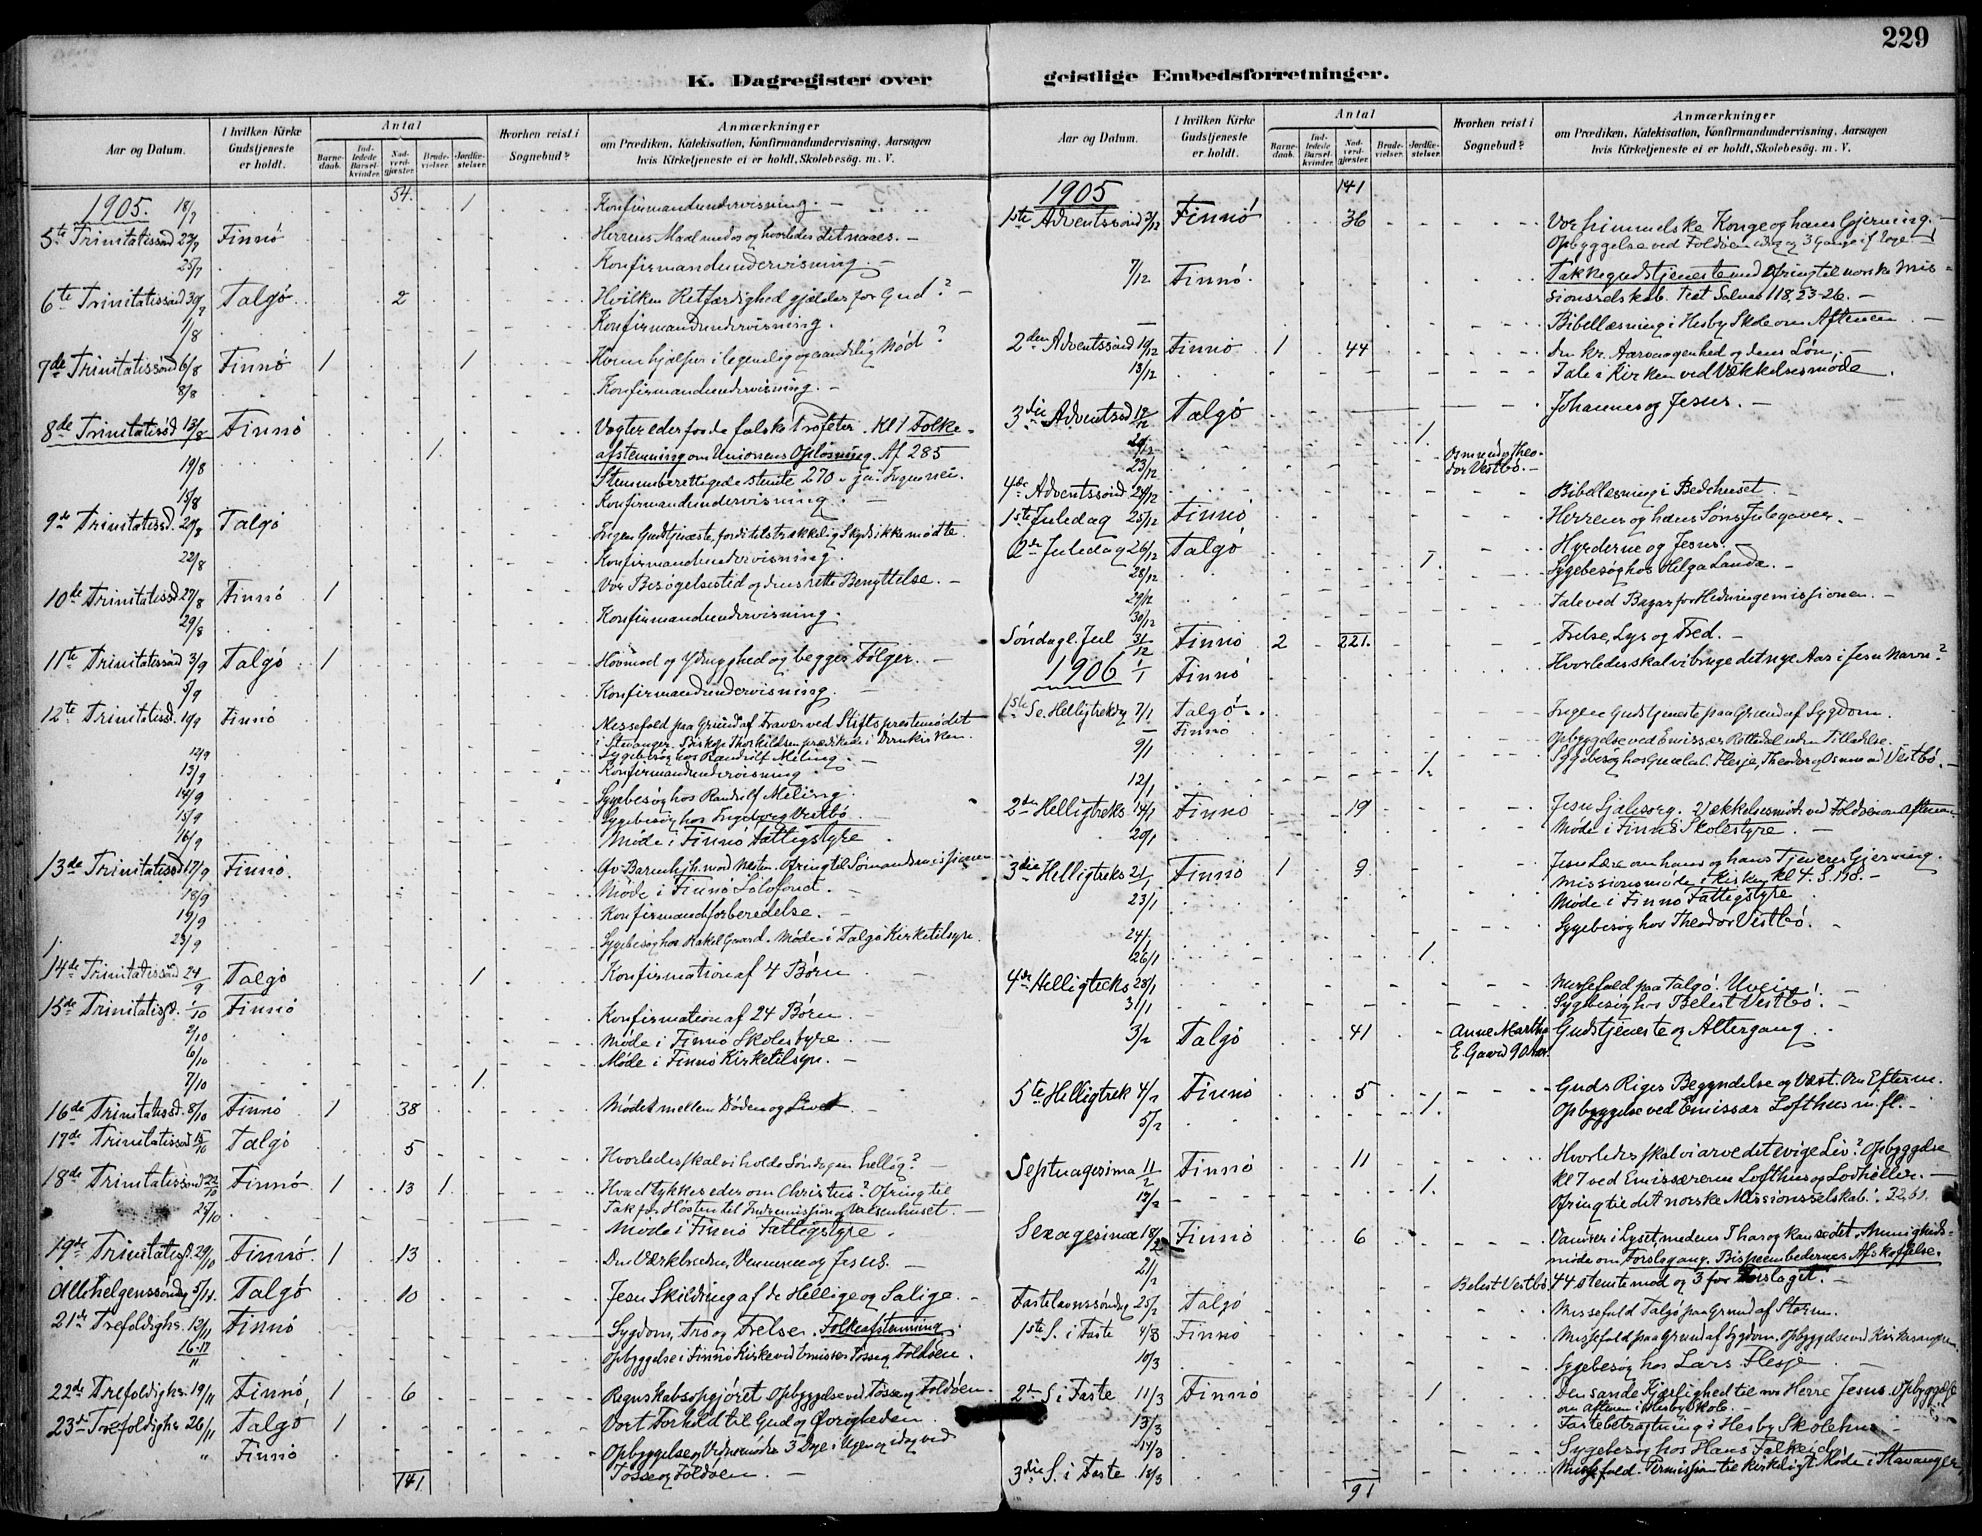 229
K. Dagregister over
geistlige Embedsforretninger.
Aar og Datum.
I hvilken Kirke Gudstjeneste er holdt.
Antal
Barnedaab.
Indledede Barselkvinder.
Nadverdgjæster.
Brudevielser.
Jordfæstelser.
Hvorhen reist i Sognebud?
Anmærkninger
om Prædiken, Katekisation, Konfirmandundervisning, Aarsagen
hvis Kirketjeneste ei er holdt, Skolebesøg. m. V.
54.
1905. 18/7 1 Konfirmandundervisning. —
5te Trinitatissønd 23/7 Finnö Herrens Maal med os og hvorledes det naaes. —
25/7 Konfirmandundervisning. —
6te Trinitatissønd 30/7 Talgö 2 Hvilken Retfærdighed gjælder for Gud? —
1/8 Konfirmandundervisning.
7de Trinitatissønd 6/8 Finnö 1 1 Hvem hjælper i legemlig og aandelig Nød?
8/8 Konfirmandundervisning. —
8de Trinitatissd 13/8 Finnö Vogter eder for de falske Profeter. Kl 1 Folke-
afstemning om Unionens Opløsning. Af 285
19/8 1. Stemmeberettigede stemte 270 "ja". Ingen nei.
15/8 Konfirmandundervisning. —
9de Trinitatissd. 20/8 Talgö Ingen Gudstjeneste, fordi tilstrækkelig Skyds ikke mødte.
22/8 Konfirmandundervisning
10de Trinitatissd 27/8 Finnö 1 Vor Besøgelsestid og dens rette Benyttelse. —
29/8 Konfirmandundervisning.
11te Trinitatissønd 3/9 Talgö 1 Hovmod og Ydmyghed og begges Følger. —
5/9 Konfirmandundervisning. —
12te Trinitatissd. 10/9 Finnö Messefald paa Grund af Fravær ved Stiftsprestemødet
i Stavanger. Biskop Thorkildsen prædikede i Domkirken
12/9 Sygebesøg hos Randulf Meling. —
13/9 Konfirmandundervisning
14/9 Sygebesøg hos Randulf Meling.
15/9 Sygebesøg hos Ingeborg Vestbö
16/9 Møde i Finnö Fattigstyre
13de Trinitatissd 17/9 Finnö. Ofring til Sømandsmissionen
18/9 Møde i Finnö Lölofond. —
19/9 Konfirmandforberedelse. —
23/9 Sygebesøg hos Rakel Gaard. Møde i Talgö Kirketilsyn.
14de Trinitatissønd 24/9 Talgö 1 Konfirmation af 4 Børn —
15de Trinitatisd. 1/10 Finnö Konfirmation af 24 Børn. —
2/10 Møde i Finnö Skolestyre. —
6/10 Møde i Finnö Kirketilsyn. —
7/10 1.
16de Trinitatissd. 8/10 Finnö 1 38 Mødet mellem Døden og Livet —
17de Trinitatissønd 15/10 Talgö 5 Hvorledes skal vi holde Søndagen hellig? —
18de Trinitatissønd 22/10 Finnö 1 13 1. Hvad tykkes eder om Christus? Ofring til
Tak for Høsten til Indremission og Vaisenhuset. —
25/10 Møde i Finnö Fattigstyre.
19de Trinitatisd. 29/10 Finnö. 1 13 Den Værkbrudne, Vennerne og Jesus. —
Allehelgenssøndag 5/11. Talgö 10 Jesu Skildring af de Hellige og Salige. —
21de Trefoldighs. 12/11 Finnö Sygdom, Tro og Frelse. Folkeafstemning.
16-17/11 Opbyggelse i Finnö Kirke ved Emissær Tösse og Foldöen.
22de Trefoldighs. 19/11 Finnö 1 6 Regnskabsopgjøret. Opbyggelse ved Tösse og Foldöen.
23de Trefoldighs 26/11 Talgö 1 Vort Forhold til Gud og Øvrigheden.
" Finnö Opbyggelse og Vidnemøder 3 Dage i Ugen og idag ved
Tösse og Foldöen. —
141
Aar og Datum.
I hvilken Kirke Gudstjeneste er holdt.
Antal
Barnedaab.
Indledede Barselkvinder.
Nadverdgjæster.
Brudevielser.
Jordfæstelser.
Hvorhen reist i Sognebud?
Anmærkninger
om Prædiken, Katekisation, Konfirmandundervisning, Aarsagen
hvis Kirketjeneste ei er holdt, Skolebesøg. m. V.
1905 141
1ste Adventssønd 3/12 Finnö 36 Vor himmelske Konge og hans Gjerning. —
Opbyggelse ved Foldöen idag og 3 Gange if. Uge. —
7/12 Finnö. Takkegudstjeneste med Ofring til norske Mis-
sionsselskab. Text Salme 118,23-26. —
— Bibellæsning i Hesby Skole om Aftenen —
2den Adventssønd 10/12 Finnö 1 44 Den kr. Aarvaagenhed og dens Løn. —
13/12 Tale i Kirken ved Vækkelsesmøde.
3die Adventssd 17/12 Talgö Johannes og Jesus. —
20/12 1.
23/12 Osmund og Theo-
dor Vestbö. —
4de Adventssönd. 24/12 Bibellæsning i Bedehuset. —
1ste Juledag 25/12 Finnö Herrens og hans Søns Julegaver. —
2de Juledag 26/12 Talgö Hyrderne og Jesus. —
28/12 1. Sygebesøg hos Helga Landa. —
29/12 Tale ved Bazar for Hedningemissionen. —
30/12
Søndag e. Jul 31/12 Finnö 2 221. Frelse, Lys og Fred. —
1906 1/1 Finnö Hvorledes skal vi bruge det nye Aar i Jesu Navn?
1ste S. e. Helligtrekdg 7/1 Talgö. Ingen Gudstjeneste paa Grund af Sygdom.
— Finnö Opbyggelse ved Emissær uden Tilladelse.
9/1 Flesje, Theodor og Osmund Vestbö. —
12/1 1.
2de Helligtreks 14/1 Finnö 19 Jesu Sjælesorg. Vækkelsesmøde ved Foldöen om aftenen
20/1 Møde i Finnö Skolestyre. —
3die Helligtreks 21/1 Finnö 1 9 Jesu Lære om hans og hans Tjeneres Gjerning.
Missionsmøde i Kirken kl 4. —
23/1 Møde i Finnö Fattigstyre
24/1 Sygebesøg hos Theodor Vestbö. —
26/1 1.
4de Helligtreks 28/1 Messefald paa Talgö. Uveir. —
31/1 Sygebesøg hos Belest Vestbö. —
3/2 Talgö 41 Anne Martha Gudstjeneste og Altergang.
E. Gaard 90 Aar.
5te Helligtrek 4/2 Finnö 5 Guds Riges Begyndelse og Væxt. Om Efterm.
5/2 1. Opbyggelse ved Emissær Lofthus m. fl. —
Septuagesima 11/2 Finnö 11 Hvorledes skal vi arve det evige Liv? Opbyggelse
kl 7 ved Emissærerne Lofthus og —
12/2 1. Ofring til det norske Missionsselskab.
Sexagesima 18/2 Finnö 6 Vandrer i Lyset, medens I har det. Menigheds-
møde om Forslag ang. Bispeembedernes Afskaffelse.
21/2 Belest Vestbö 44 stemte mod og 3 for Forslaget. —
Fastelavnssøndag 25/2 Talgö Messefald Talgö paa Grund af Storm.
1ste S. i Faste 4/3 Finnö Messefald paa Grund af Sygdom. Opbyggelse ved Kirkesangeren
10/3 Sygebesøg hos Lars Flesje. —
2de S. i Faste 11/3 Finnö 1 Den sande Kjærlighed til vor Herre Jesus. Opbyggelse
om aftenen i Hesby Skole. —
13/3 Fastebetragtning i Hesby Skolehus —
14/3 Sygebesøg hos Hans Falkeid. —
3die S. i Faste 18/3 Messefald. Permission til kirkeligt Møde i Stavanger.
91